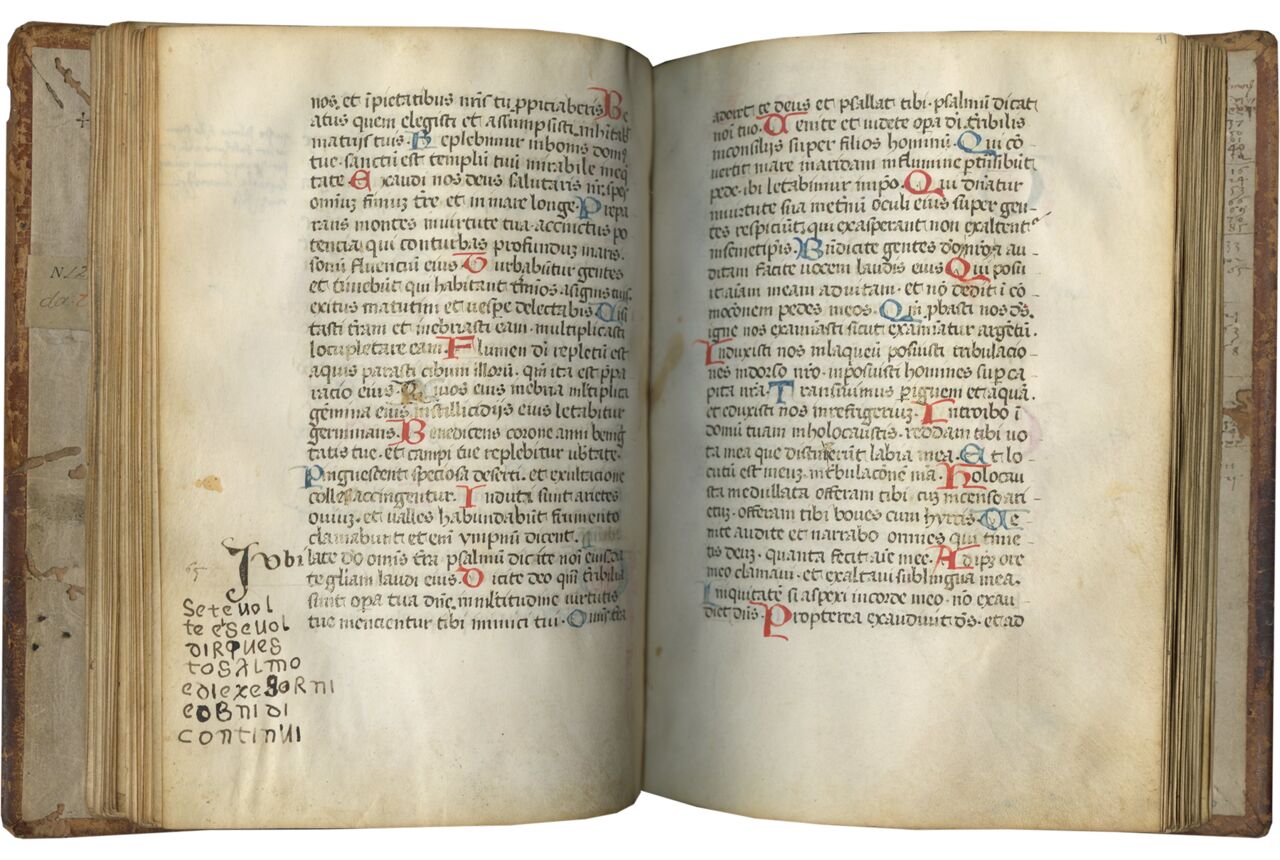 nos, et ipietatibus nris tu ppiciaberis Be
atus quem elegisti et assumpsisti inhitab
in atriis tuis. Replebimur in bonis dom9
tue. sanctu est templu tuu mirabile in eq
tate Exaudi nos deus salutaris nr. spes
omniuz finiuz tre et in mare longe. Prepa
rans montes in virtute tua. accinctus po
tencia, qui conturbas profunduz maris.
sonu fluctuu eius Turbabutur gentes
et timebut qui habitant tminos a signis tuis
exitus matutini et vespe delectabis. Uisi
tasti tram et inebriasti eam. multiplicasti
locupletare eam. Flumen di repletu est
aquis parasti cibum illoru. qm ita est ppa
racio eius. Riuos eius inebria mltiplica
gemina eius. in stillicidijs eius letabitur
germinans. Benedicens corone anni benig
tatis tue. et campi tue replebitur ubtate.
Pinguescent speciosa deserti. et exultacione
colles accingentur. Induti sunt arietes
ouiuz. et ualles habundabut frumento
clamabunt et eni ympnu dicent.
Jubilate do omis tra psalmu dicite noi eius. da
te gliam laudi eius. Dicite deo qm tribilia
sunt opa tua dne in mltitudine virtutis
tue mencientur tibi inimici tui. Omis tra
Se te uol
te e se uol
DIR QUES
TO SALMO
e DI exe gORNI
e oBNI DI
CONTINUI
N/2
41
adoret te deus et psallat tibi. psalmu dicat
noi tuo. Uenite et uidete opa di tribilis
in consilijs super filios hominu. Qui co
uertit mare in aridam in flumine ptnsibut
pede. ibi letabimur in ipo. Qui dinatur
in uirtute sua in etnu oculi eius super gen
tes respiciut. qui exasperant non exaltent
in semetipsis. Bndicite gentes dom nra au
ditam facite uocem laudis eius Qui posu
it aiam meam ad uitam. et no dedit i co
moconem pedes meos. Qm pbasti nos ds.
igne nos examiasti sicut examiatur argetu.
Induxisti nos in laqueu posuisti tribulacio
nes in dorso nro. inposuisti homines sup ca
pita nra. Transiuimus p iguem et aqua.
et eduxisti nos in refrigeriuz. Introibo i
domu tuam in holocaustis. reddam tibi uo
ta mea que distinxerut labia mea. Et lo
cutu est meuz. in tribulacone mea. Holocau
sta medullata offeram tibi cuz incenso ari
etuz. offeram tibi boues cum hyrcis. Ue
nite audite et narrabo omnes qui time
tis deuz. quanta fecit aie mee. Ad ipz ore
meo clamaui. et exaltaui sub lingua mea.
Iniquitate si aspexi in corde meo. no exau
diet dns. Propterea exaudiuit ds. et ad